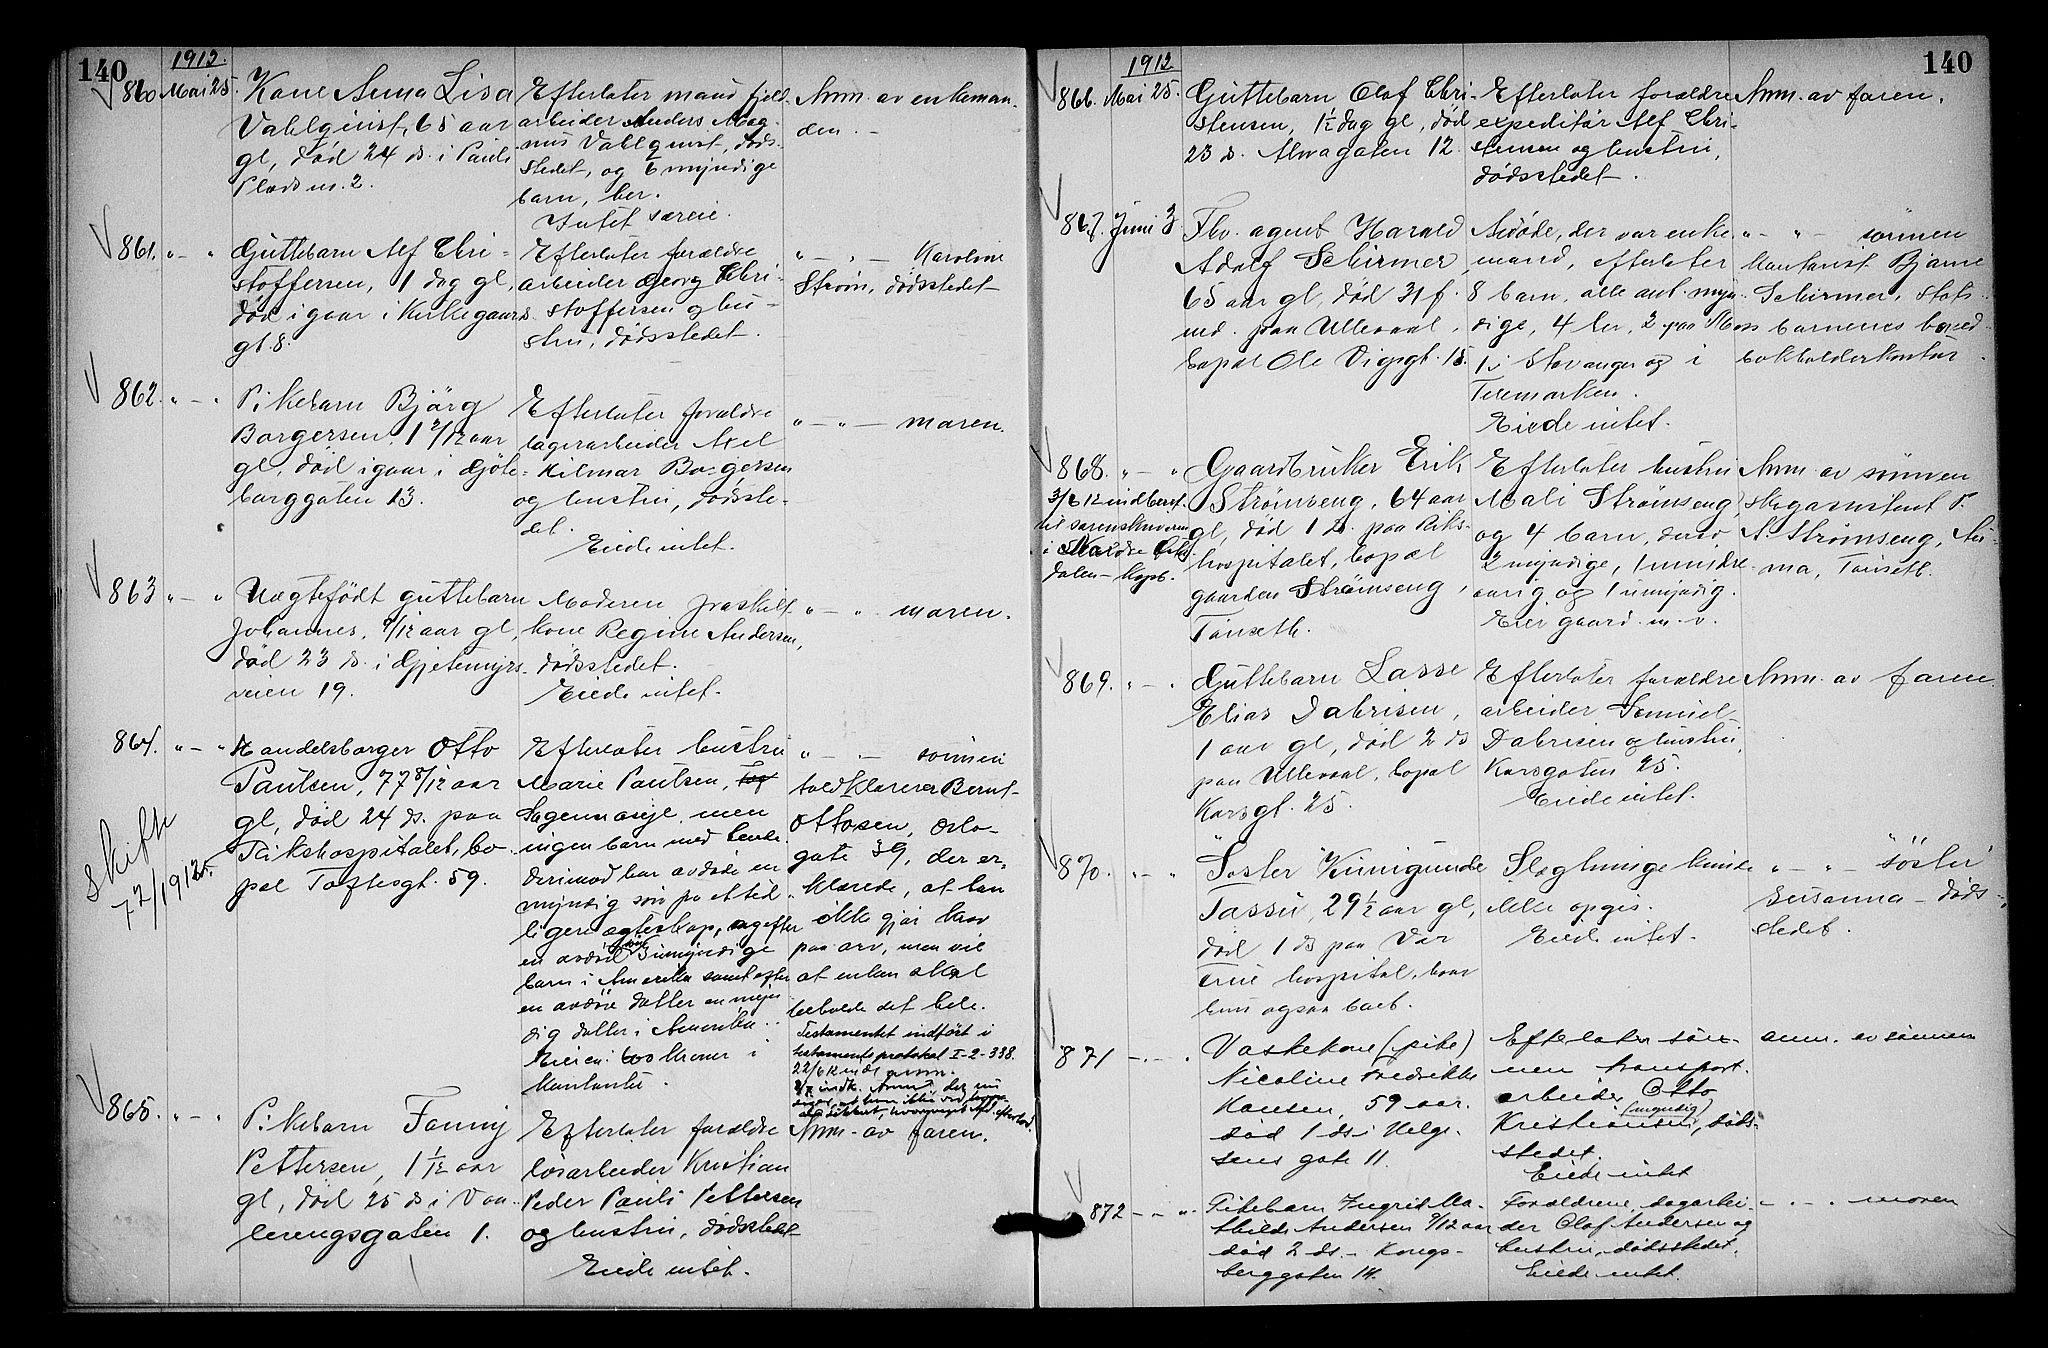 140
1912.
860 Mai 25.
Kone Anna Lisa
Vahlqinst, 65 aar
gl, død 24 ds. i Pauls
Plads nr. 2.
Efterlater mand fjeld-
arbeider Anders Mag-
nus Vahlqinst, døds-
stedet, og 6 myndige
barn, her.
Intet særeie.
Anm. av enkeman-
den. -
861. " - "
Guttebarn Alf Chri-
stoffersen, 1 dag gl,
død igaar i Kirkegaards
gt. 8.
Efterlater forældre
arbeider Georg Chri-
stoffersen og hu-
stru, dødsstedet.
" - " - Karoline
Strøm, dødsstedet
862. " - "
Pikebarn Bjørg
Borgersen 1 2/12 aar
gl, død igaar i Gjøte-
borggaten 13.
Efterlater forældre
lagerarbeider Axel
Hilmar Borgersen
og hustru, dødsste-
det.
Eiede intet.
" - " - moren.
863 " - "
Uægtefødt guttebarn
Johannes, /12 aar gl,
død 23 ds. i Gjetemyrs-
veien 19.
Moderen fraskilt
kone Regine Andersen,
dødsstedet.
Eiede intet.
" - " - moren.
864. " - "
skifte
72/1912.
Handelsborger Otto
Paulsen, 77 8/12 aar
gl, død 24 ds. paa
Rikshospitalet, bo-
pæl Toftesgt. 59.
Efterlater hustru
Marie Paulsen,
Sagenæseje, men
ingen barn med hende.
Derimod har avdøde en
myndig søn fra et tid-
ligere egteskap, og efter
en avdød søn 3 umyndige
barn i Amerika samt efter
en avdød datter en myn-
dig datter i Amerika.
Eier kroner i
kontanter.
" - " - sønnen
toldklarerer Bernt
Ottosen, Oslo-
gate 39, der er-
klærede, at han
ikke gjør krav
paa arv, men vil
at enken skal
beholde det hele.
Testamentet indført i
testamentsprotokol I-2-338.
865. " - "
Pikebarn Fanny
Pettersen, 1 1/12 aar
gl, død 25 ds i Vaa-
lerengsgaten 1.
Efterlater forældre
løsarbeider Kristian
Peder Pauli Pettersen
og hustru, dødsstedet
Eiede intet.
Anm. av faren.
140
1912
866. Mai 25.
Guttebarn Olaf Chri-
stensen, 1½ dag gl, død
23 ds. Alvagaten 12.
Efterlater forældre
expeditør Alf Chri-
stensen og hustru,
dødsstedet.
Anm. av faren.
867. Juni 3
Fhv. agent Harald
Adolf Schirmer,
65 aar gl, død 31 f.
md. paa Ullevaal,
bopæl Ole Vigsgt. 15.
Avdøde, der var enke-
mand, efterlater
8 barn, alle ant. myn-
dige, 4 her, 2 paa Moss
1 i Stavanger og 1 i
Telemarken.
Eiede intet.
" - " - sønnen
kontorist Bjarne
Schirmer, Stats-
banernes hoved-
bokholderkontor.
868. " - "
3/6 12 indberet.
til sorenskriveren
i Nordre Østerdalen - Kopi.
Gaardbruker Erik
Strømseng, 64 aar
gl, død 1 ds. paa Riks-
hospitalet, bopæl
gaarden Strømseng,
Tønseth.
Efterlater hustru
Mali Strømseng
og 4 barn, derav
2 myndige, 1 mindre-
aarig og 1 umyndig.
Eier gaard m. v.
Anm. av sønnen
A. Strømseng,
Tønseth.
869. " - "
Guttebarn Lasse
Elias Dahrisen,
1 aar gl, død 2 ds
paa Ullevaal, bopæl
Korsgt. 25.
Efterlater forældre
arbeider Samuel
Dahrisen og hustru,
Korsgaten 25.
Eiede intet.
Anm. av faren.
870. " - "
Søster Kunigunde
Tassii, 29½ aar gl,
død 1 ds paa Vor
Frue hospital, hvor
hun ogsaa bodde.
Slegtninge kunde
ikke opgis.
Eiede intet.
" - " - søster
Susanna - døds-
stedet.
871 - " -
Vaskekone (pike)
Nicoline Fredrikke
Hansen, 59 aar.
død 1 ds i Helge-
sens gate 11.
Efterlater søn-
nen transport-
arbeider Otto
(myndig)
Kristiansen, døds-
stedet.
Eiede intet
anm. av sønnen
872 - " -
Pikebarn Ingrid Ma-
thilde Andersen 9/12 aar
død 2 ds. - Kongs-
berggaten 14.
Forældrene, dagarbei-
der Olaf Andersen og
hustru, dødsstedet.
Eiede intet.
- " - moren